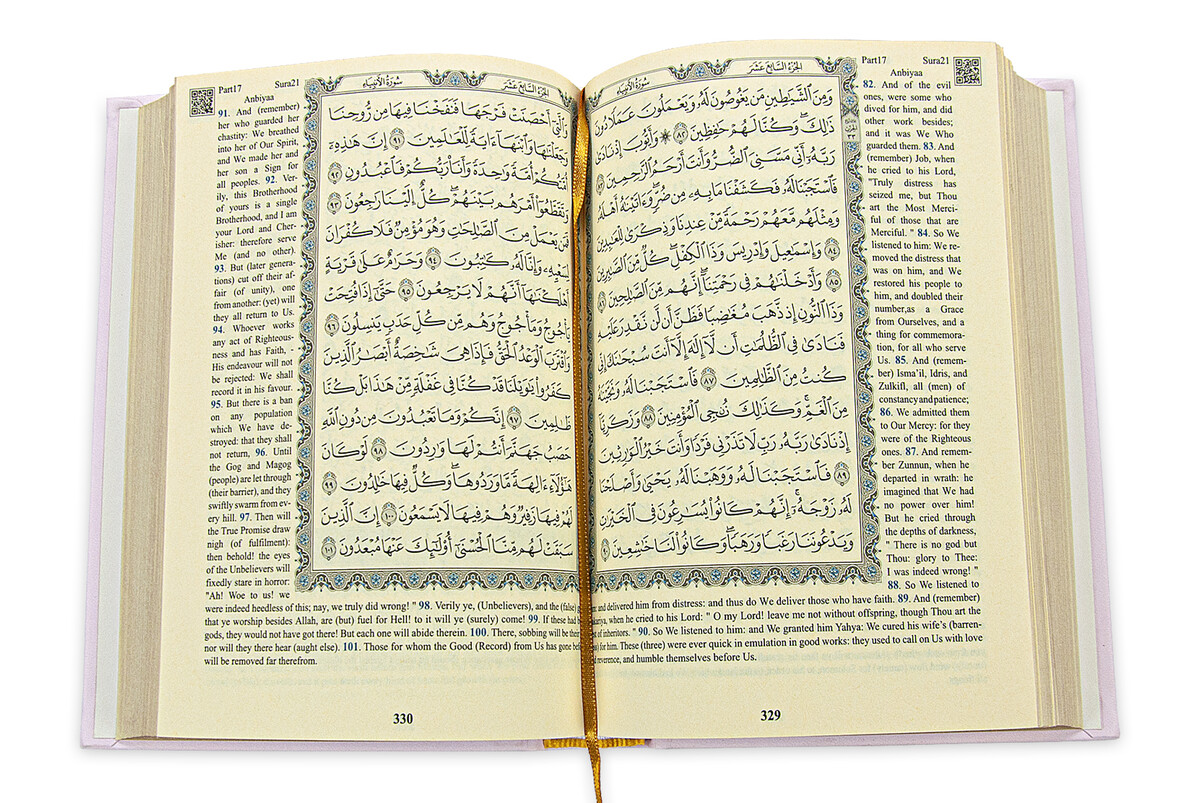 Part17 Sura21
Anbiyaa
82. And of the evil
ones, were some who
dived for him, and did
other work besides;
and it was We Who
guarded them. 83. And
(remember) Job, when
he cried to his Lord,
"Truly distress has
seized me, but Thou
art the Most Merci-
ful of those that are
Merciful. " 84. So We
listened to him: We re-
moved the distress that
was on him, and We
restored his people to
him, and doubled their
number,as a Grace
from Ourselves, and a
thing for commemora-
tion, for all who serve
Us. 85. And (remem-
ber) Isma'il, Idris, and
Zulkifl, all (men) of
constancy and patience;
86. We admitted them
to Our Mercy: for they
were of the Righteous
ones. 87. And remem-
ber Zunnun, when he
departed in wrath: he
imagined that We had
no power over him!
But he cried through
the depths of darkness,
" There is no god but
Thou: glory to Thee:
I was indeed wrong! "
88. So We listened to
and delivered him from distress: and thus do We deliver those who have faith. 89. And (remember)
when he cried to his Lord: " O my Lord! leave me not without offspring, though Thou art the
of inheritors. " 90. So We listened to him: and We granted him Yahya: We cured his wife's (barren-
for him. These (three) were ever quick in emulation in good works: they used to call on Us with love
reverence, and humble themselves before Us.
الجزء السابع عشر سورة الأنبياء
وَمِنَ ٱلشَّيَٰطِينِ مَن يَغُوصُونَ لَهُۥ وَيَعْمَلُونَ عَمَلًا دُونَ
ذَٰلِكَ ۖ وَكُنَّا لَهُمْ حَٰفِظِينَ ٨٢ ۞ وَأَيُّوبَ إِذْ نَادَىٰ
رَبَّهُۥٓ أَنِّى مَسَّنِىَ ٱلضُّرُّ وَأَنتَ أَرْحَمُ ٱلرَّٰحِمِينَ ٨٣
فَٱسْتَجَبْنَا لَهُۥ فَكَشَفْنَا مَا بِهِۦ مِن ضُرٍّ ۖ وَءَاتَيْنَٰهُ أَهْلَهُۥ
وَمِثْلَهُم مَّعَهُمْ رَحْمَةً مِّنْ عِندِنَا وَذِكْرَىٰ لِلْعَٰبِدِينَ
٨٤ وَإِسْمَٰعِيلَ وَإِدْرِيسَ وَذَا ٱلْكِفْلِ ۖ كُلٌّ مِّنَ ٱلصَّٰبِرِينَ
٨٥ وَأَدْخَلْنَٰهُمْ فِى رَحْمَتِنَآ ۖ إِنَّهُم مِّنَ ٱلصَّٰلِحِينَ ٨٦
وَذَا ٱلنُّونِ إِذ ذَّهَبَ مُغَٰضِبًا فَظَنَّ أَن لَّن نَّقْدِرَ عَلَيْهِ
فَنَادَىٰ فِى ٱلظُّلُمَٰتِ أَن لَّآ إِلَٰهَ إِلَّآ أَنتَ سُبْحَٰنَكَ إِنِّى
كُنتُ مِنَ ٱلظَّٰلِمِينَ ٨٧ فَٱسْتَجَبْنَا لَهُۥ وَنَجَّيْنَٰهُ
مِنَ ٱلْغَمِّ ۚ وَكَذَٰلِكَ نُۨجِى ٱلْمُؤْمِنِينَ ٨٨ وَزَكَرِيَّآ
إِذْ نَادَىٰ رَبَّهُۥ رَبِّ لَا تَذَرْنِى فَرْدًا وَأَنتَ خَيْرُ ٱلْوَٰرِثِينَ
٨٩ فَٱسْتَجَبْنَا لَهُۥ وَوَهَبْنَا لَهُۥ يَحْيَىٰ وَأَصْلَحْنَا
لَهُۥ زَوْجَهُۥٓ ۚ إِنَّهُمْ كَانُوا۟ يُسَٰرِعُونَ فِى ٱلْخَيْرَٰتِ
وَيَدْعُونَنَا رَغَبًا وَرَهَبًا ۖ وَكَانُوا۟ لَنَا خَٰشِعِينَ ٩٠
329
Part17 Sura21
Anbiyaa
91. And (remember)
her who guarded her
chastity: We breathed
into her of Our Spirit,
and We made her and
her son a Sign for
all peoples. 92. Ver-
ily, this Brotherhood
of yours is a single
Brotherhood, and I am
your Lord and Cher-
isher: therefore serve
Me (and no other).
93. But (later genera-
tions) cut off their af-
fair (of unity), one
from another: (yet) will
they all return to Us.
94. Whoever works
any act of Righteous-
ness and has Faith, -
His endeavour will not
be rejected: We shall
record it in his favour.
95. But there is a ban
on any population
which We have de-
stroyed: that they shall
not return, 96. Until
the Gog and Magog
(people) are let through
(their barrier), and they
swiftly swarm from ev-
ery hill. 97. Then will
the True Promise draw
nigh (of fulfilment):
then behold! the eyes
of the Unbelievers will
fixedly stare in horror:
"Ah! Woe to us! we
were indeed heedless of this; nay, we truly did wrong! " 98. Verily ye, (Unbelievers), and the (false)
that ye worship besides Allah, are (but) fuel for Hell! to it will ye (surely) come! 99. If these had
gods, they would not have got there! But each one will abide therein. 100. There, sobbing will be their
nor will they there hear (aught else). 101. Those for whom the Good (Record) from Us has gone
will be removed far therefrom.
الجزء السابع عشر سورة الأنبياء
وَٱلَّتِىٓ أَحْصَنَتْ فَرْجَهَا فَنَفَخْنَا فِيهَا مِن رُّوحِنَا
وَجَعَلْنَٰهَا وَٱبْنَهَآ ءَايَةً لِّلْعَٰلَمِينَ ٩١ إِنَّ هَٰذِهِۦٓ
أُمَّتُكُمْ أُمَّةً وَٰحِدَةً وَأَنَا۠ رَبُّكُمْ فَٱعْبُدُونِ ٩٢
وَتَقَطَّعُوٓا۟ أَمْرَهُم بَيْنَهُمْ ۖ كُلٌّ إِلَيْنَا رَٰجِعُونَ ٩٣
فَمَن يَعْمَلْ مِنَ ٱلصَّٰلِحَٰتِ وَهُوَ مُؤْمِنٌ فَلَا كُفْرَانَ
لِسَعْيِهِۦ وَإِنَّا لَهُۥ كَٰتِبُونَ ٩٤ وَحَرَٰمٌ عَلَىٰ قَرْيَةٍ
أَهْلَكْنَٰهَآ أَنَّهُمْ لَا يَرْجِعُونَ ٩٥ حَتَّىٰٓ إِذَا فُتِحَتْ
يَأْجُوجُ وَمَأْجُوجُ وَهُم مِّن كُلِّ حَدَبٍ يَنسِلُونَ ٩٦
وَٱقْتَرَبَ ٱلْوَعْدُ ٱلْحَقُّ فَإِذَا هِىَ شَٰخِصَةٌ أَبْصَٰرُ ٱلَّذِينَ
كَفَرُوا۟ يَٰوَيْلَنَا قَدْ كُنَّا فِى غَفْلَةٍ مِّنْ هَٰذَا بَلْ كُنَّا
ظَٰلِمِينَ ٩٧ إِنَّكُمْ وَمَا تَعْبُدُونَ مِن دُونِ ٱللَّهِ
حَصَبُ جَهَنَّمَ أَنتُمْ لَهَا وَٰرِدُونَ ٩٨ لَوْ كَانَ
هَٰٓؤُلَآءِ ءَالِهَةً مَّا وَرَدُوهَا ۖ وَكُلٌّ فِيهَا خَٰلِدُونَ ٩٩
لَهُمْ فِيهَا زَفِيرٌ وَهُمْ فِيهَا لَا يَسْمَعُونَ ١٠٠ إِنَّ ٱلَّذِينَ
سَبَقَتْ لَهُم مِّنَّا ٱلْحُسْنَىٰٓ أُو۟لَٰٓئِكَ عَنْهَا مُبْعَدُونَ ١٠١
330